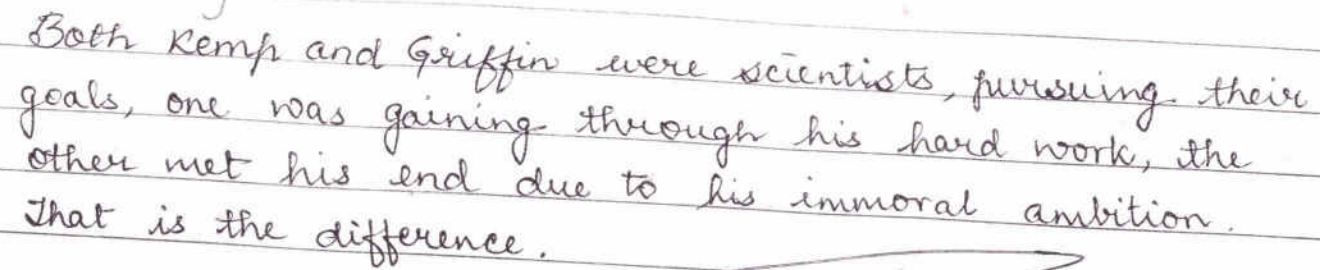 Both Kemp and Griffin were scientists, pursuing their
goals, one was gaining through his hard work, the
other met his end due to his immoral ambition.
That is the difference.